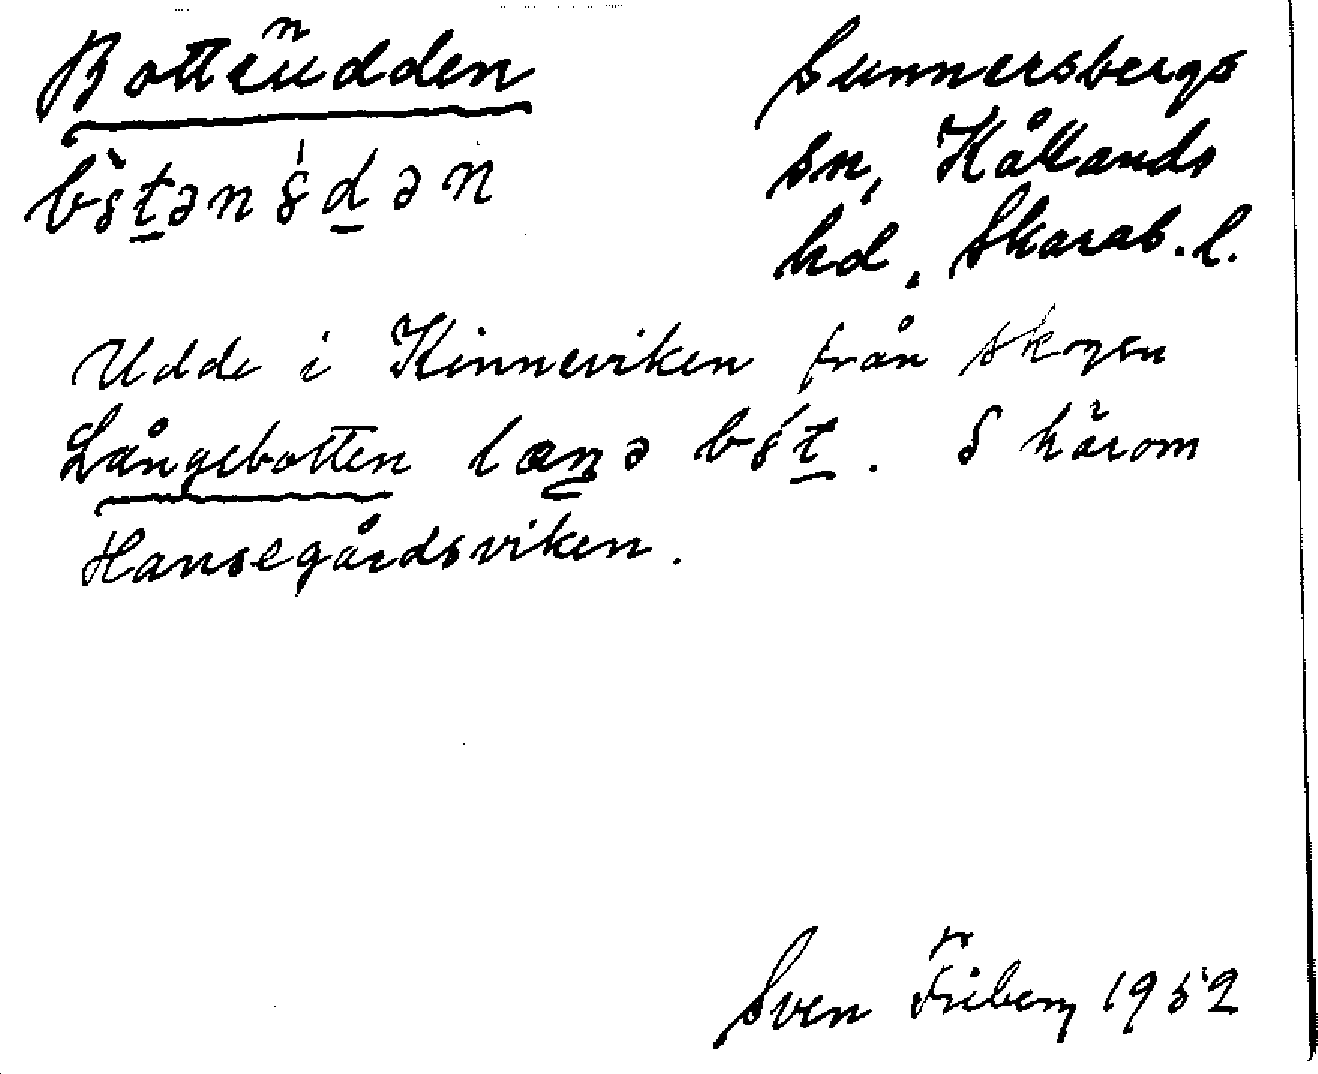 Bottenudden
Sunnersbergs
sn, Kållands
hd, Skarab. l.
Udde i Kinneviken från skogen
Långebotten . S härom
Hansegårdsviken.
Sven Friberg 1952